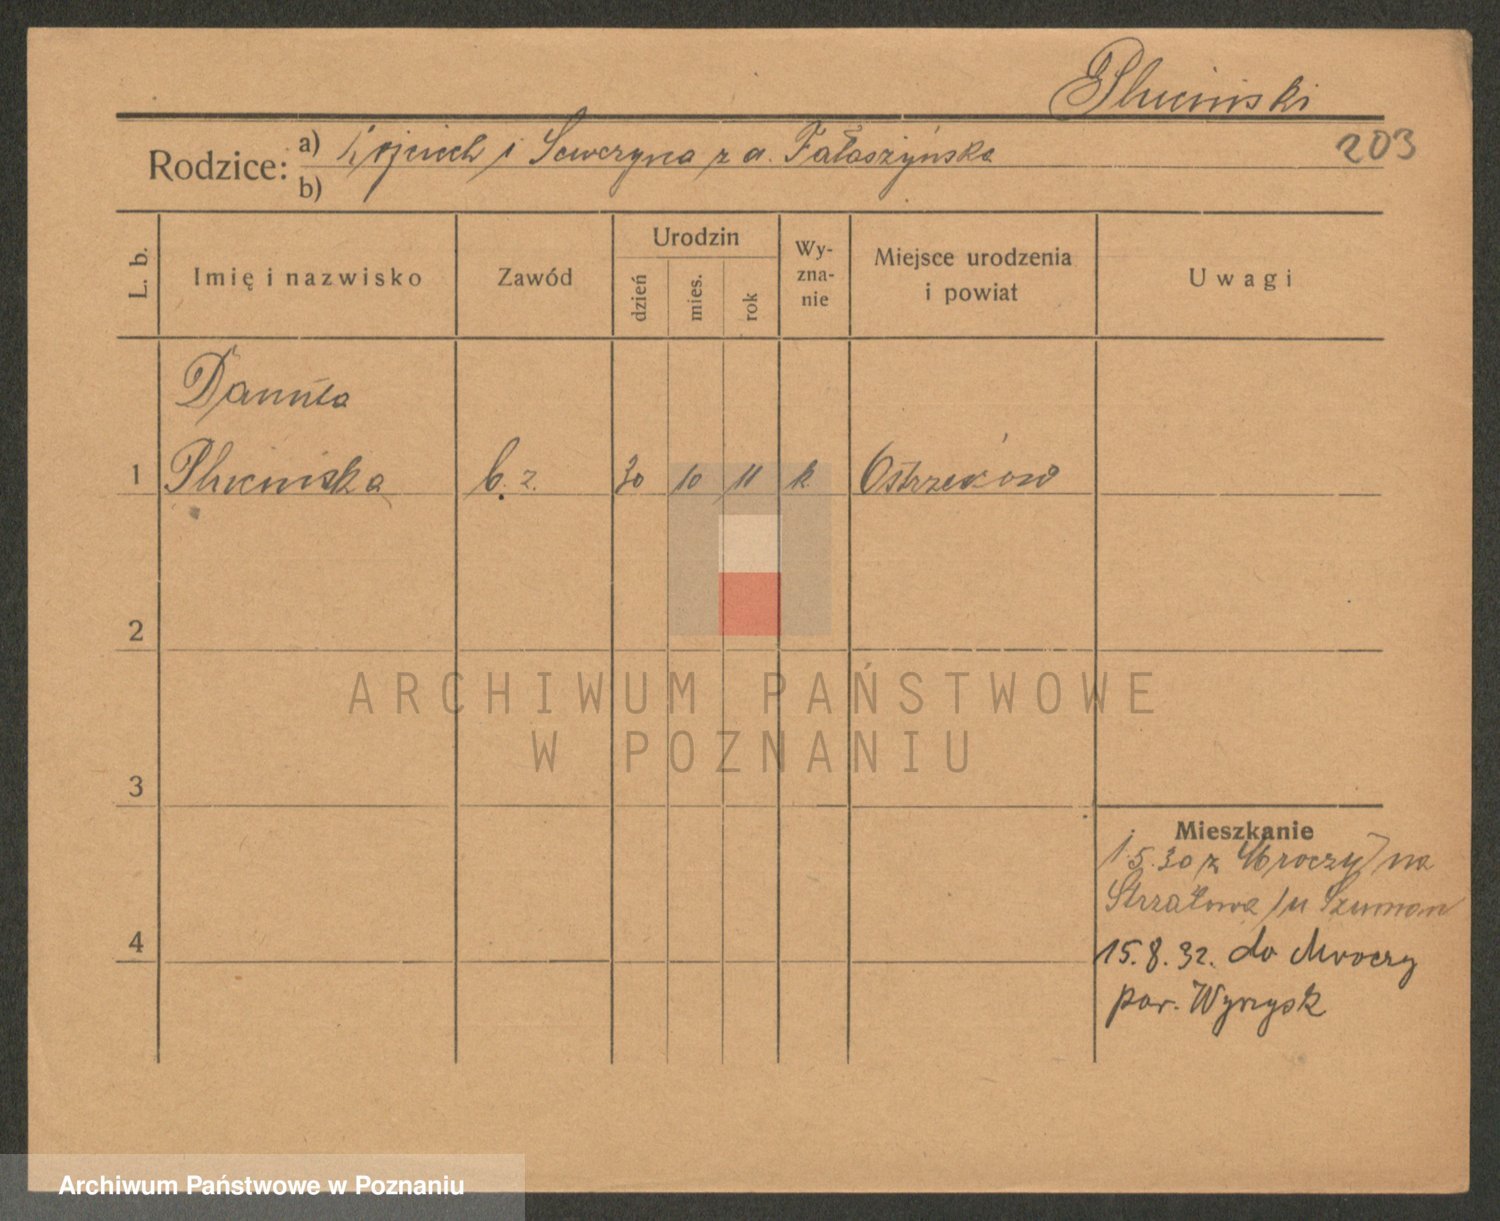 Pluciński
203
Rodzice: a) Wojciech i Seweryna z d. Fałaszyńska
b)
L. b.
Imię i nazwisko
Zawód
Urodzin
dzień
mies.
rok
Wy-
zna-
nie
Miejsce urodzenia
i powiat
Uwagi
Danuta
1 Plucińska b. z. 30 10 11 k. Ostrzeszów
2
3
4
Mieszkanie
1.5.30 z Mroczy na
Strzałowa /u Szuman
15.8.32. do Mroczy
pow. Wyrzysk
ARCHIWUM PAŃSTWOWE
W POZNANIU
Archiwum Państwowe w Poznaniu